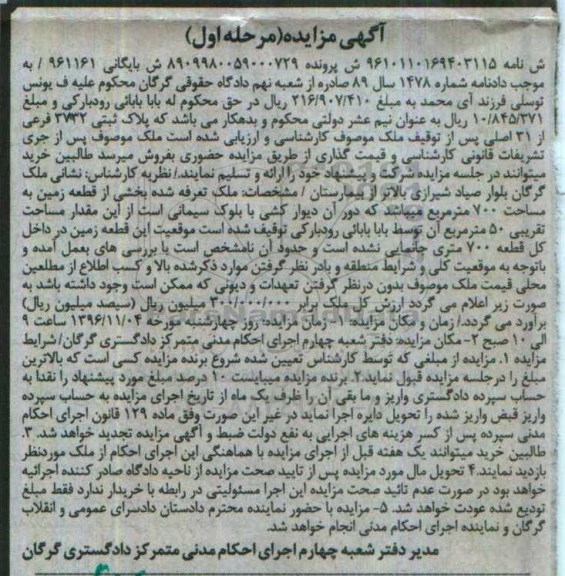 آگهی مزایده(مرحله اول)
ش نامه ۹۶۱۰۱۱۰۱۶۹۴۰۳۱۱۵ ش پرونده ۸۹۰۹۹۸۰۰۵۹۰۰۰۷۲۹ ش بایگانی ۹۶۱۱۶۱ / به
موجب دادنامه شماره ۱۴۷۸ سال ۸۹ صادره از شعبه نهم دادگاه حقوقی گرگان محکوم علیه ف یونس
توسلی فرزند آی محمد به مبلغ ۲۱۶/۹۰۷/۴۱۰ ریال در حق محکوم له بابا بابائی رودبارکی و مبلغ
۱۰/۸۴۵/۳۷۱ ریال به عنوان نیم عشر دولتی محکوم و بدهکار می باشد که پلاک ثبتی ۲۷۳۲ فرعی
از ۳۱ اصلی پس از توقیف ملک موصوف کارشناسی و ارزیابی شده است ملک موصوف پس از جری
تشریفات قانونی کارشناسی و قیمت گذاری از طریق مزایده حضوری بفروش میرسد طالبین خرید
میتوانند در جلسه مزایده شرکت و پیشنهاد خود را ارائه و تسلیم نمایند./ نظریه کارشناس: نشانی ملک
گرگان بلوار صیاد شیرازی بالاتر از بیمارستان / مشخصات: ملک تعرفه شده بخشی از قطعه زمین به
مساحت ۷۰۰ مترمربع میباشد که دور آن دیوار کشی با بلوک سیمانی است از این مقدار مساحت
تقریبی ۵۰ مترمربع آن توسط بابا بابائی رودبارکی توقیف شده است موقعیت این قطعه زمین در داخل
کل قطعه ۷۰۰ متری جانمایی نشده است و حدود آن نامشخص است با بررسی های بعمل آمده و
باتوجه به موقعیت کلی و شرایط منطقه و بادر نظر گرفتن موارد ذکرشده بالا و کسب اطلاع از مطلعین
محلی قیمت ملک موصوف بدون درنظر گرفتن تعهدات و دیونی که ممکن است وجود داشته باشد به
صورت زیر اعلام می گردد ارزش کل ملک برابر ۳۰۰/۰۰۰/۰۰۰ میلیون ریال (سیصد میلیون ریال)
برآورد می گردد./ زمان و مکان مزایده: ۱- زمان مزایده: روز چهارشنبه مورخه ۱۳۹۶/۱۱/۰۴ ساعت ۹
الی ۱۰ صبح ۲- مکان مزایده: دفتر شعبه چهارم اجرای احکام مدنی متمرکز دادگستری گرگان/ شرایط
مزایده ۱. مزایده از مبلغی که توسط کارشناس تعیین شده شروع برنده مزایده کسی است که بالاترین
مبلغ را درجلسه مزایده قبول نماید.۲. برنده مزایده میبایست ۱۰ درصد مبلغ مورد پیشنهاد را نقدا به
حساب سپرده دادگستری واریز و ما بقی آن را ظرف یک ماه از تاریخ اجرای مزایده به حساب سپرده
واریز قبض واریز شده را تحویل دایره اجرا نماید در غیر این صورت وفق ماده ۱۲۹ قانون اجرای احکام
مدنی سپرده پس از کسر هزینه های اجرایی به نفع دولت ضبط و آگهی مزایده تجدید خواهد شد. ۳.
طالبین خرید میتوانند یک هفته قبل از اجرای مزایده با هماهنگی این اجرای احکام از ملک موردنظر
بازدید نمایند.۴ تحویل مال مورد مزایده پس از تایید صحت مزایده از ناحیه دادگاه صادر کننده اجرائیه
خواهد بود در صورت عدم تائید صحت مزایده این اجرا مسئولیتی در رابطه با خریدار ندارد فقط مبلغ
تودیع شده عودت خواهد شد. ۵- مزایده با حضور نماینده محترم دادستان دادسرای عمومی و انقلاب
گرگان و نماینده اجرای احکام مدنی انجام خواهد شد.
مدیر دفتر شعبه چهارم اجرای احکام مدنی متمرکز دادگستری گرگان